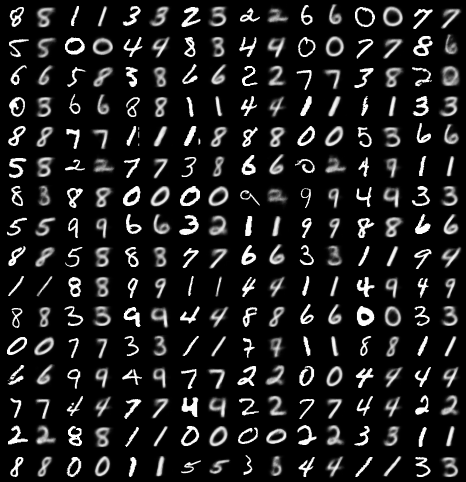 8 8 1 1 3 3 2 3 2 2 6 6 0 0 7 7
5 5 0 0 4 4 8 3 4 4 0 0 7 7 8 6
6 6 5 8 3 8 6 6 2 2 7 7 3 8 2 0
0 3 6 6 8 8 1 1 4 4 1 1 1 1 3 3
8 8 7 7 1 1 1 8 8 8 0 0 5 3 6 6
5 8 2 2 7 7 3 8 6 6 0 2 4 9 1 1
8 3 8 8 0 0 0 0 9 2 9 9 4 9 3 3
5 5 9 9 6 6 3 2 1 1 9 9 8 8 6 6
8 8 5 8 8 8 7 7 6 6 3 3 1 1 9 4
1 1 8 8 9 9 1 1 4 4 1 1 4 9 4 9
8 8 3 3 9 9 4 4 8 8 6 6 0 0 3 3
0 0 7 7 3 3 1 1 7 9 1 1 8 8 1 1
6 6 9 9 4 9 7 7 2 2 0 0 4 4 4 9
7 7 4 4 7 7 4 9 2 2 7 7 4 4 2 2
2 2 8 8 1 1 0 0 0 0 2 2 3 3 1 1
8 8 0 0 1 1 5 5 3 8 4 4 1 1 3 3